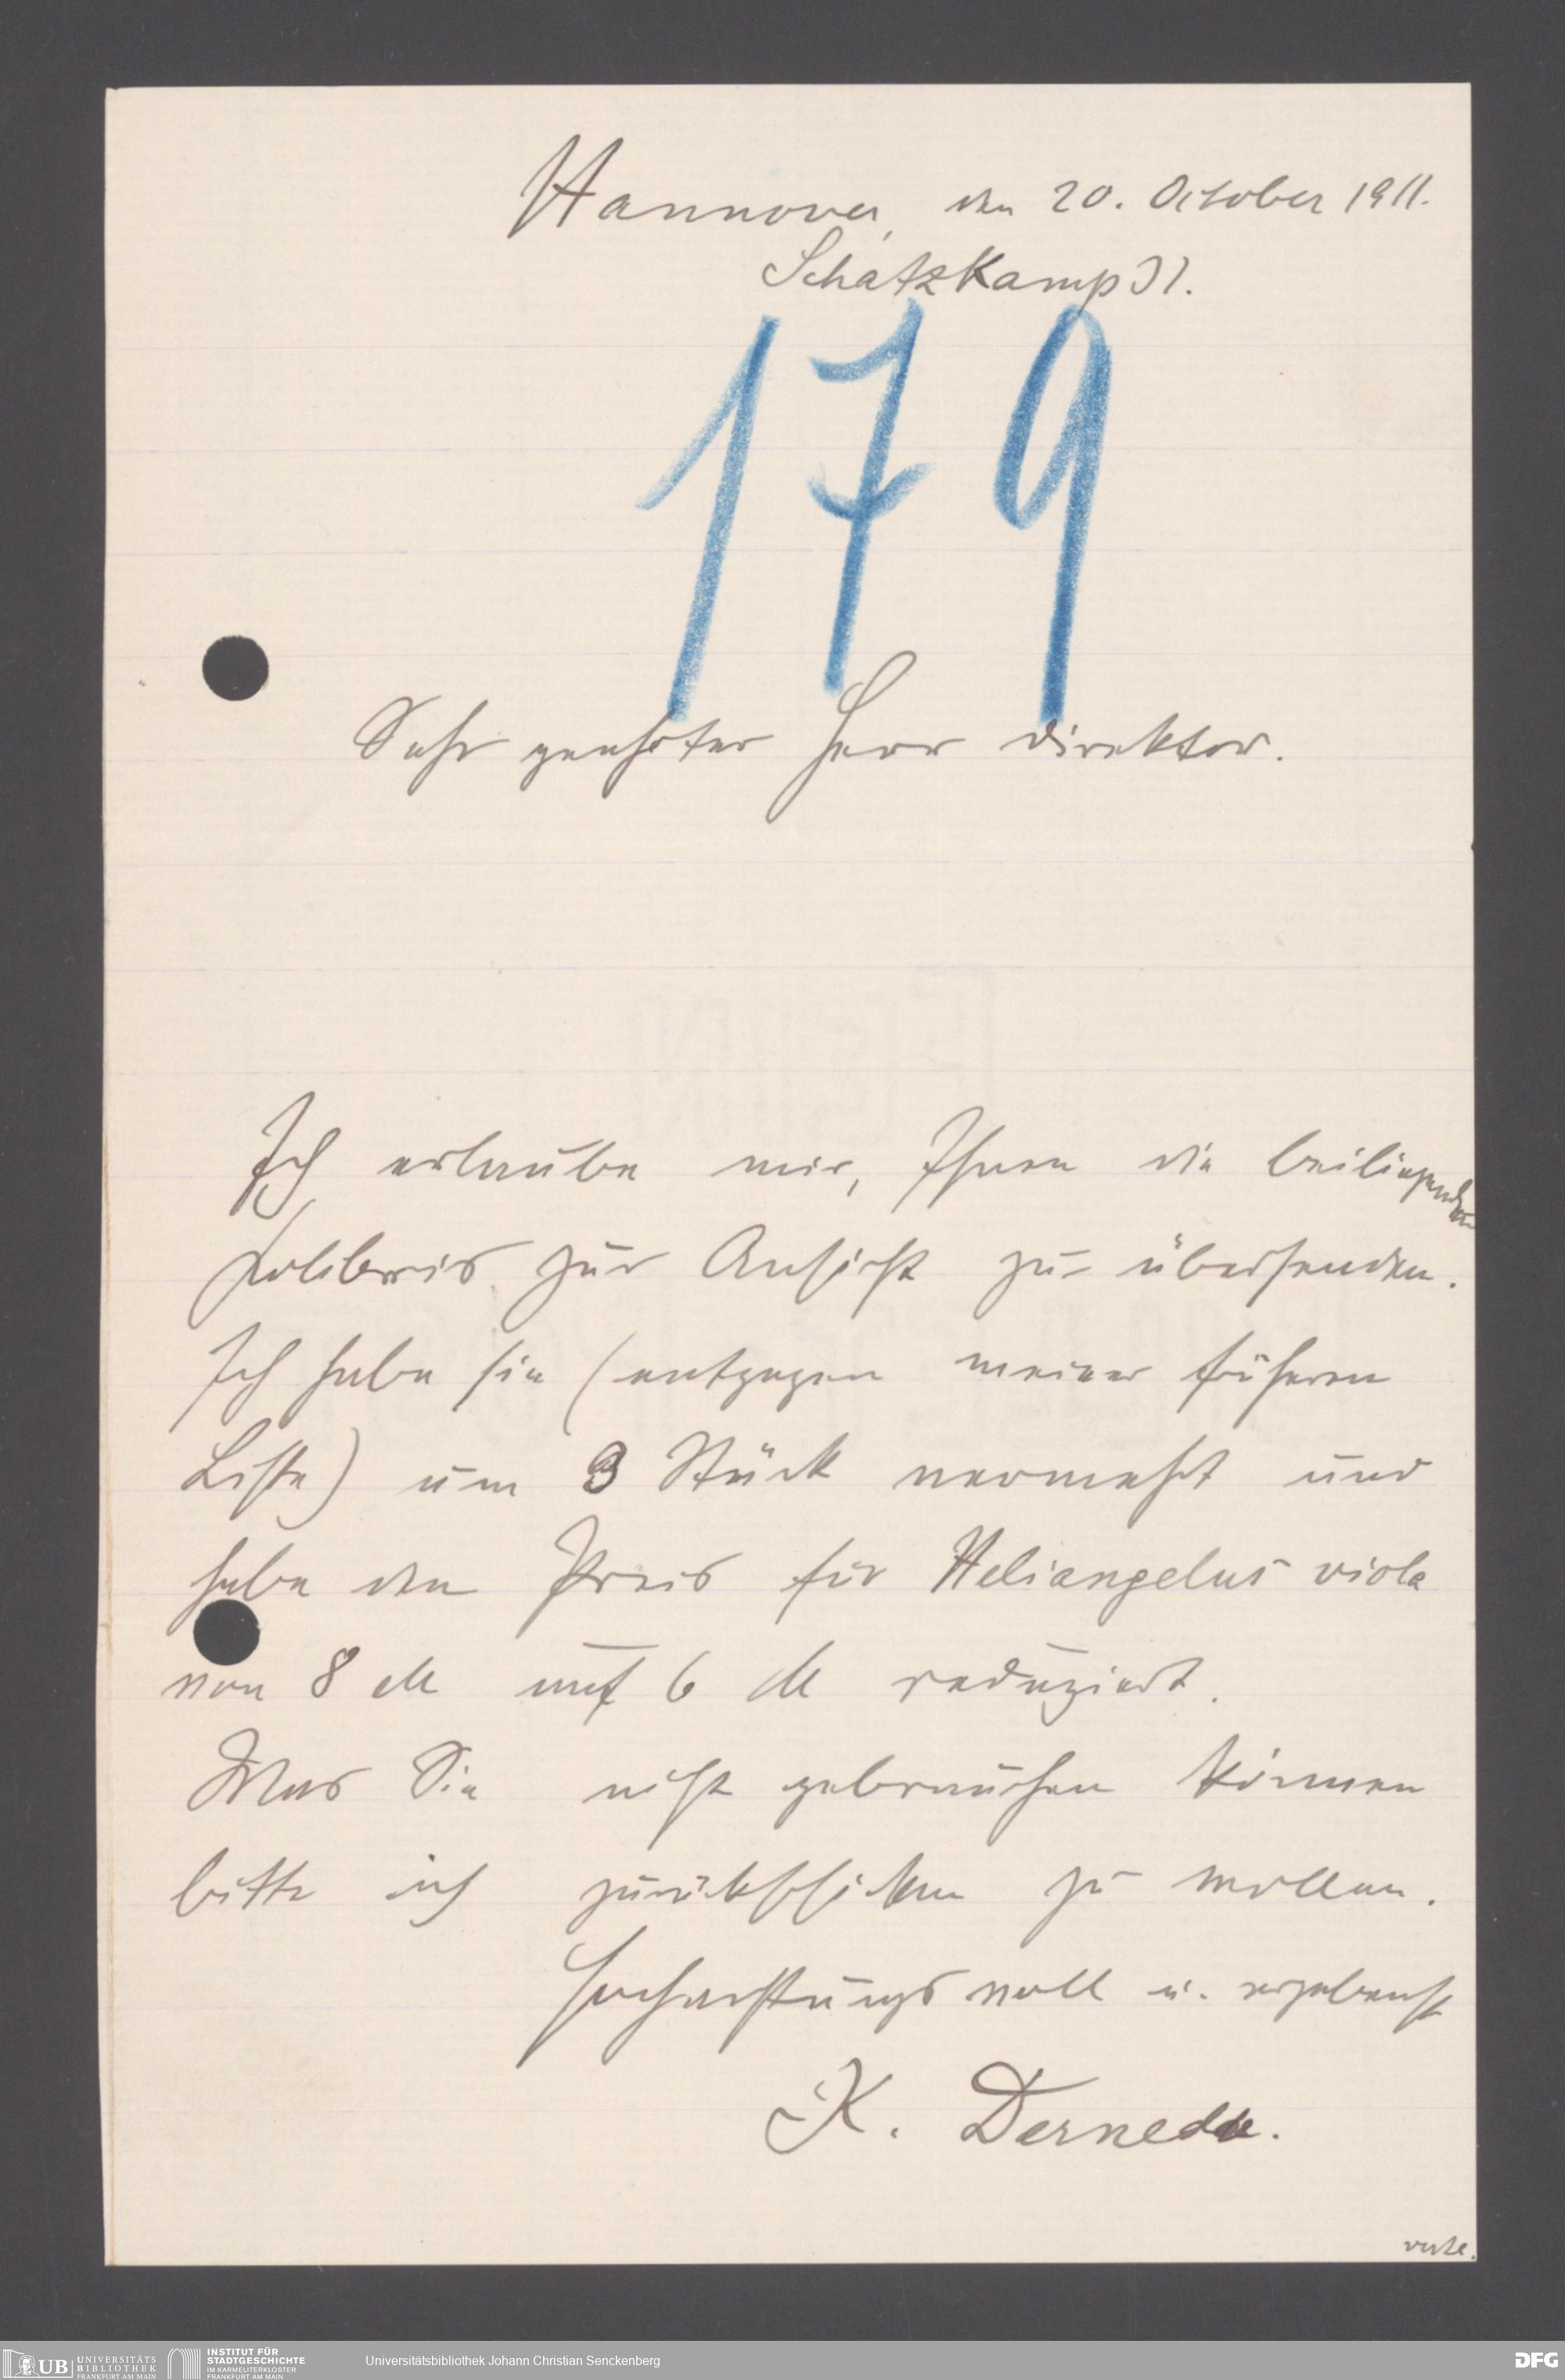 Hannover, den 20. October 1911.
Schatzkamp 31.
179
Sehr geehrter Herr Direktor.
Ich erlaube mir, Ihnen die beiliegenden
Kolibris zur Ansicht zu übersenden.
Ich habe sie (entgegen meiner früheren
Liste) um 3 Stück vermehrt und
habe den Preis für Heliangelus viola
von 8 M auf 6 M reduziert.
Was Sie nicht gebrauchen können
bitte ich zurückschicken zu wollen.
Hochachtungsvoll u. ergebenst
K. Dernedde.
UB UNIVERSITÄTS
BIBLIOTHEK
FRANKFURT AM MAIN
INSTITUT FÜR
STADTGESCHICHTE
IM KARMELITERKLOSTER
FRANKFURT AM MAIN
Universitätsbibliothek Johann Christian Senckenberg
DFG